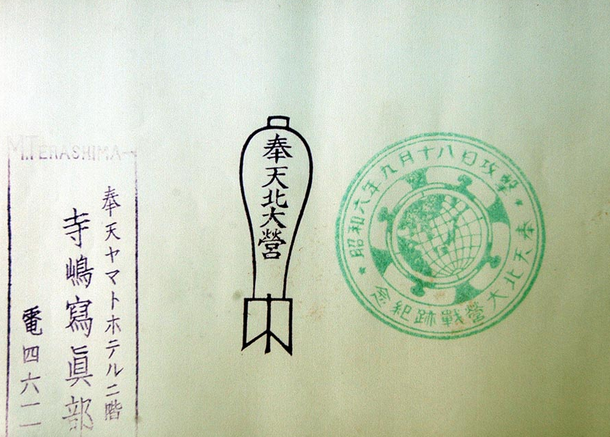 M.TERASHIMA
奉天ヤマトホテル二階
寺嶋寫眞部
電四六二
奉天北大營
昭和六年九月十八日攻撃
奉天北大營戰跡紀念